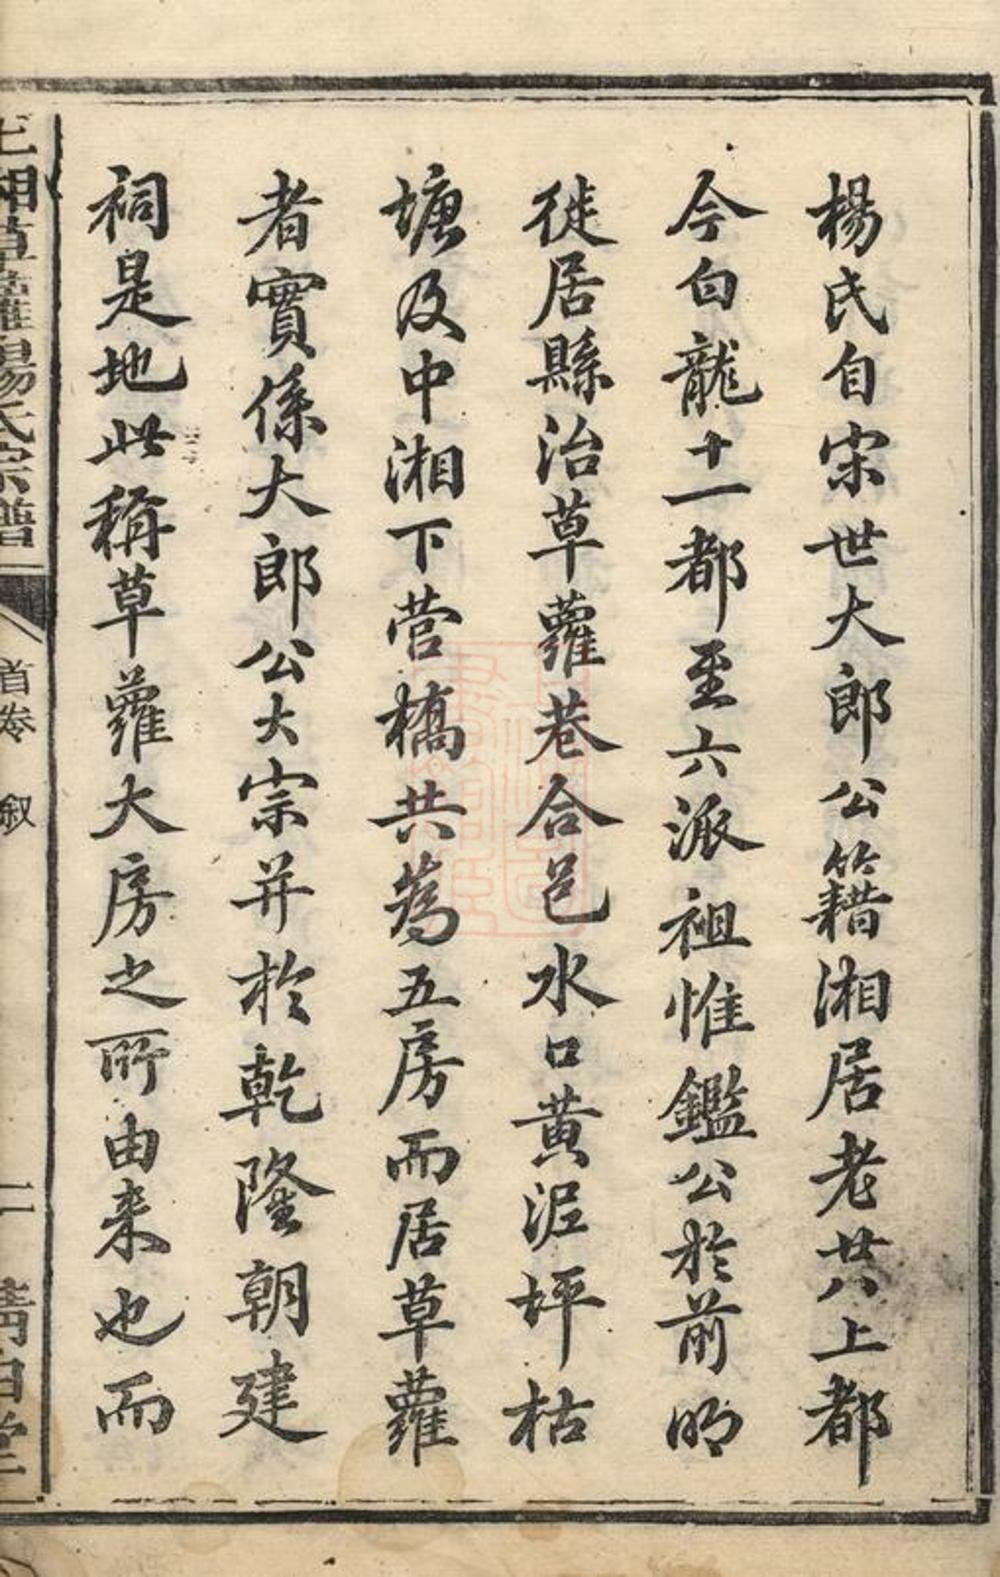 楊氏自宋世大郎公籍湘居老廿八上都
今白龍十一都至六派祖惟鑑公於前明
徙居縣治草蘿巷合邑水口黄泥坪枯
塘及中湘下营橋共為五房而居草蘿
者實係大郎公大宗并於乾隆朝建
祠是地此稱草蘿大房之所由来也而
上湘草蘿楊氏宗譜
首卷 叙
二 清白堂